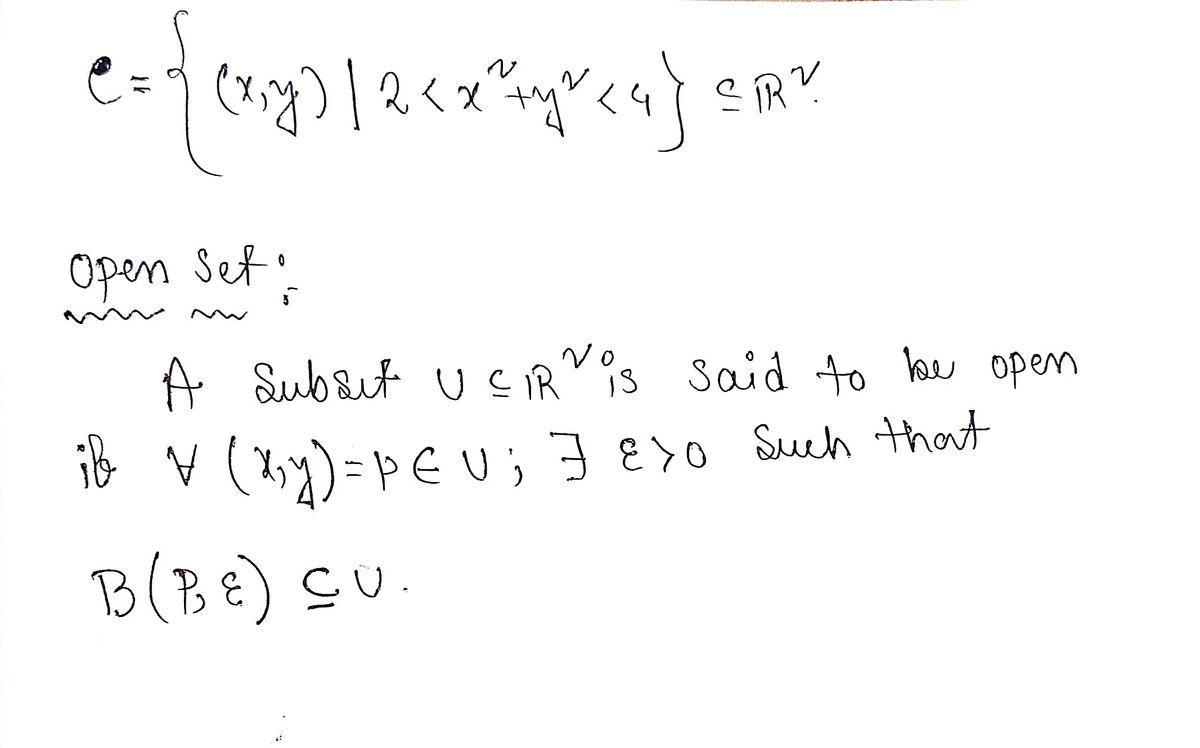 C = { (x,y) | 2 < x² + y² < 4 } ⊆ ℝ².
Open Set :
A Subset U ⊆ ℝ² is said to be open
if ∀ (x,y) = p ∈ U ; ∃ ε > 0 Such that
B(P, ε) ⊆ U.